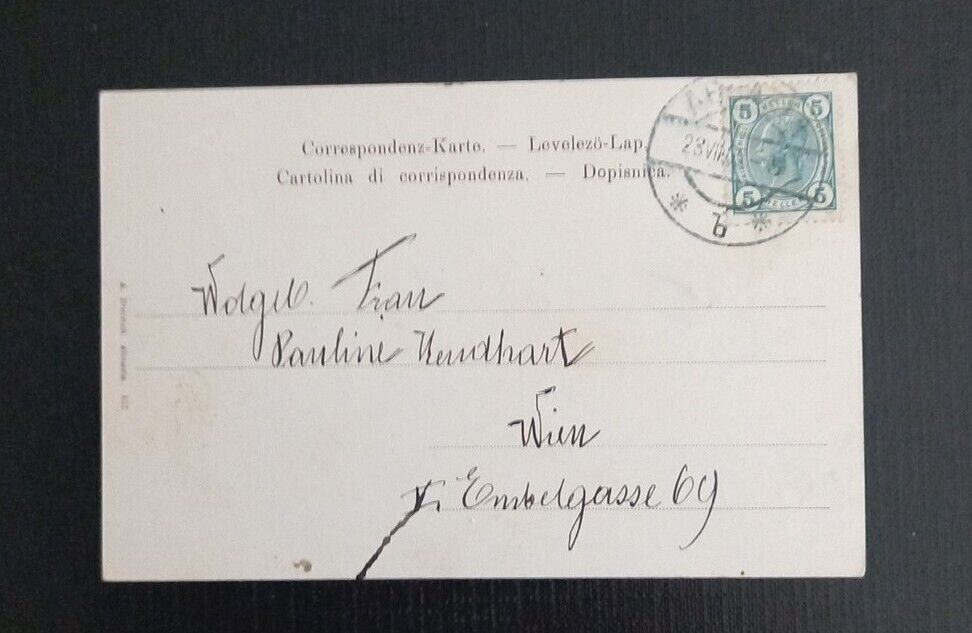 Correspondenz-Karte. — Levelezö-Lap.
Cartolina di corrispondenza. — Dopisnica.
5 5
5 5
23 VII
b
Wolgeb. Frau
Pauline
Wien
V. Embelgasse 69